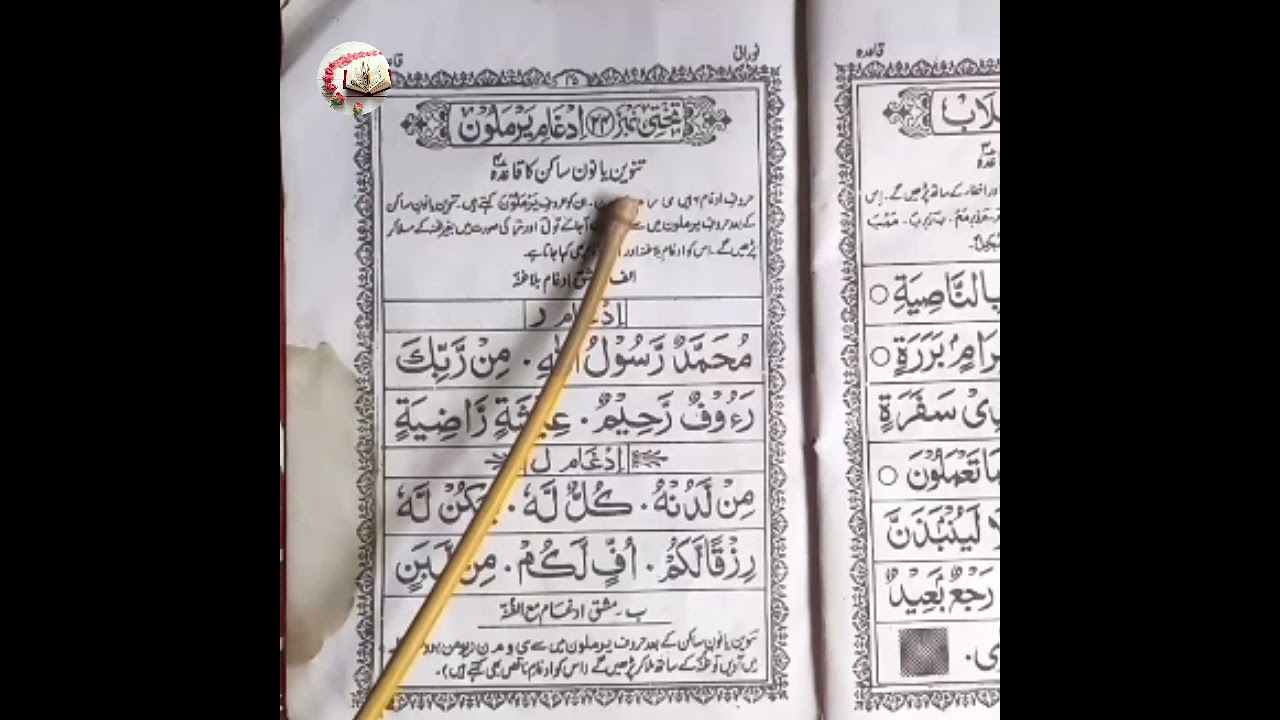 نورانی
تختی نمبر ۲۳ ادغام یرملون
تنوین یا نون ساکن کا قاعدہ
حروف ادغام ۶ ہیں ی ر ان کو حروف یَرْمَلُوْنَ کہتے ہیں۔ تنوین یا نون ساکن
کے بعد حروف یرملون میں سے آجائے تو ل اور ر کی صورت میں بغیر غنہ کے ملا کر
پڑھیں گے۔ اس کو ادغام بلاغنہ اور بھی کہا جاتا ہے۔
الف مشق ادغام بلاغنہ
اِدْغَام ر
مُحَمَّدٌ رَّسُوْلُ اللّٰهِ ۰ مِنْ رَّبِّكَ
رَءُوْفٌ رَّحِيْمٌ ۰ عِيْشَةٍ رَّاضِيَةٍ
اِدْغَام ل
مِنْ لَّدُنْهُ ۰ كُلٌّ لَّهٗ ۰ يَكُنْ لَّهٗ
رِزْقًا لَّكُمْ ۰ اُفٍّ لَّكُمْ ۰ مِنْ لَّبَنٍ
ب۔ مشق ادغام مع الغنّہ
تنوین یا نون ساکن کے بعد حروف یرملون میں سے ی و م ن
میں آئیں تو غنّہ کے ساتھ ملا کر پڑھیں گے (اس کو ادغام ناقص بھی کہتے ہیں)۔
قاعدہ
بِالنَّاصِيَةِ ○
بَرَرَةٍ ○
سَفَرَةٍ
تَعْمَلُوْنَ ○
لَيُنْۢبَذَنَّ
رَجْعٌۢ بَعِيْدٌ